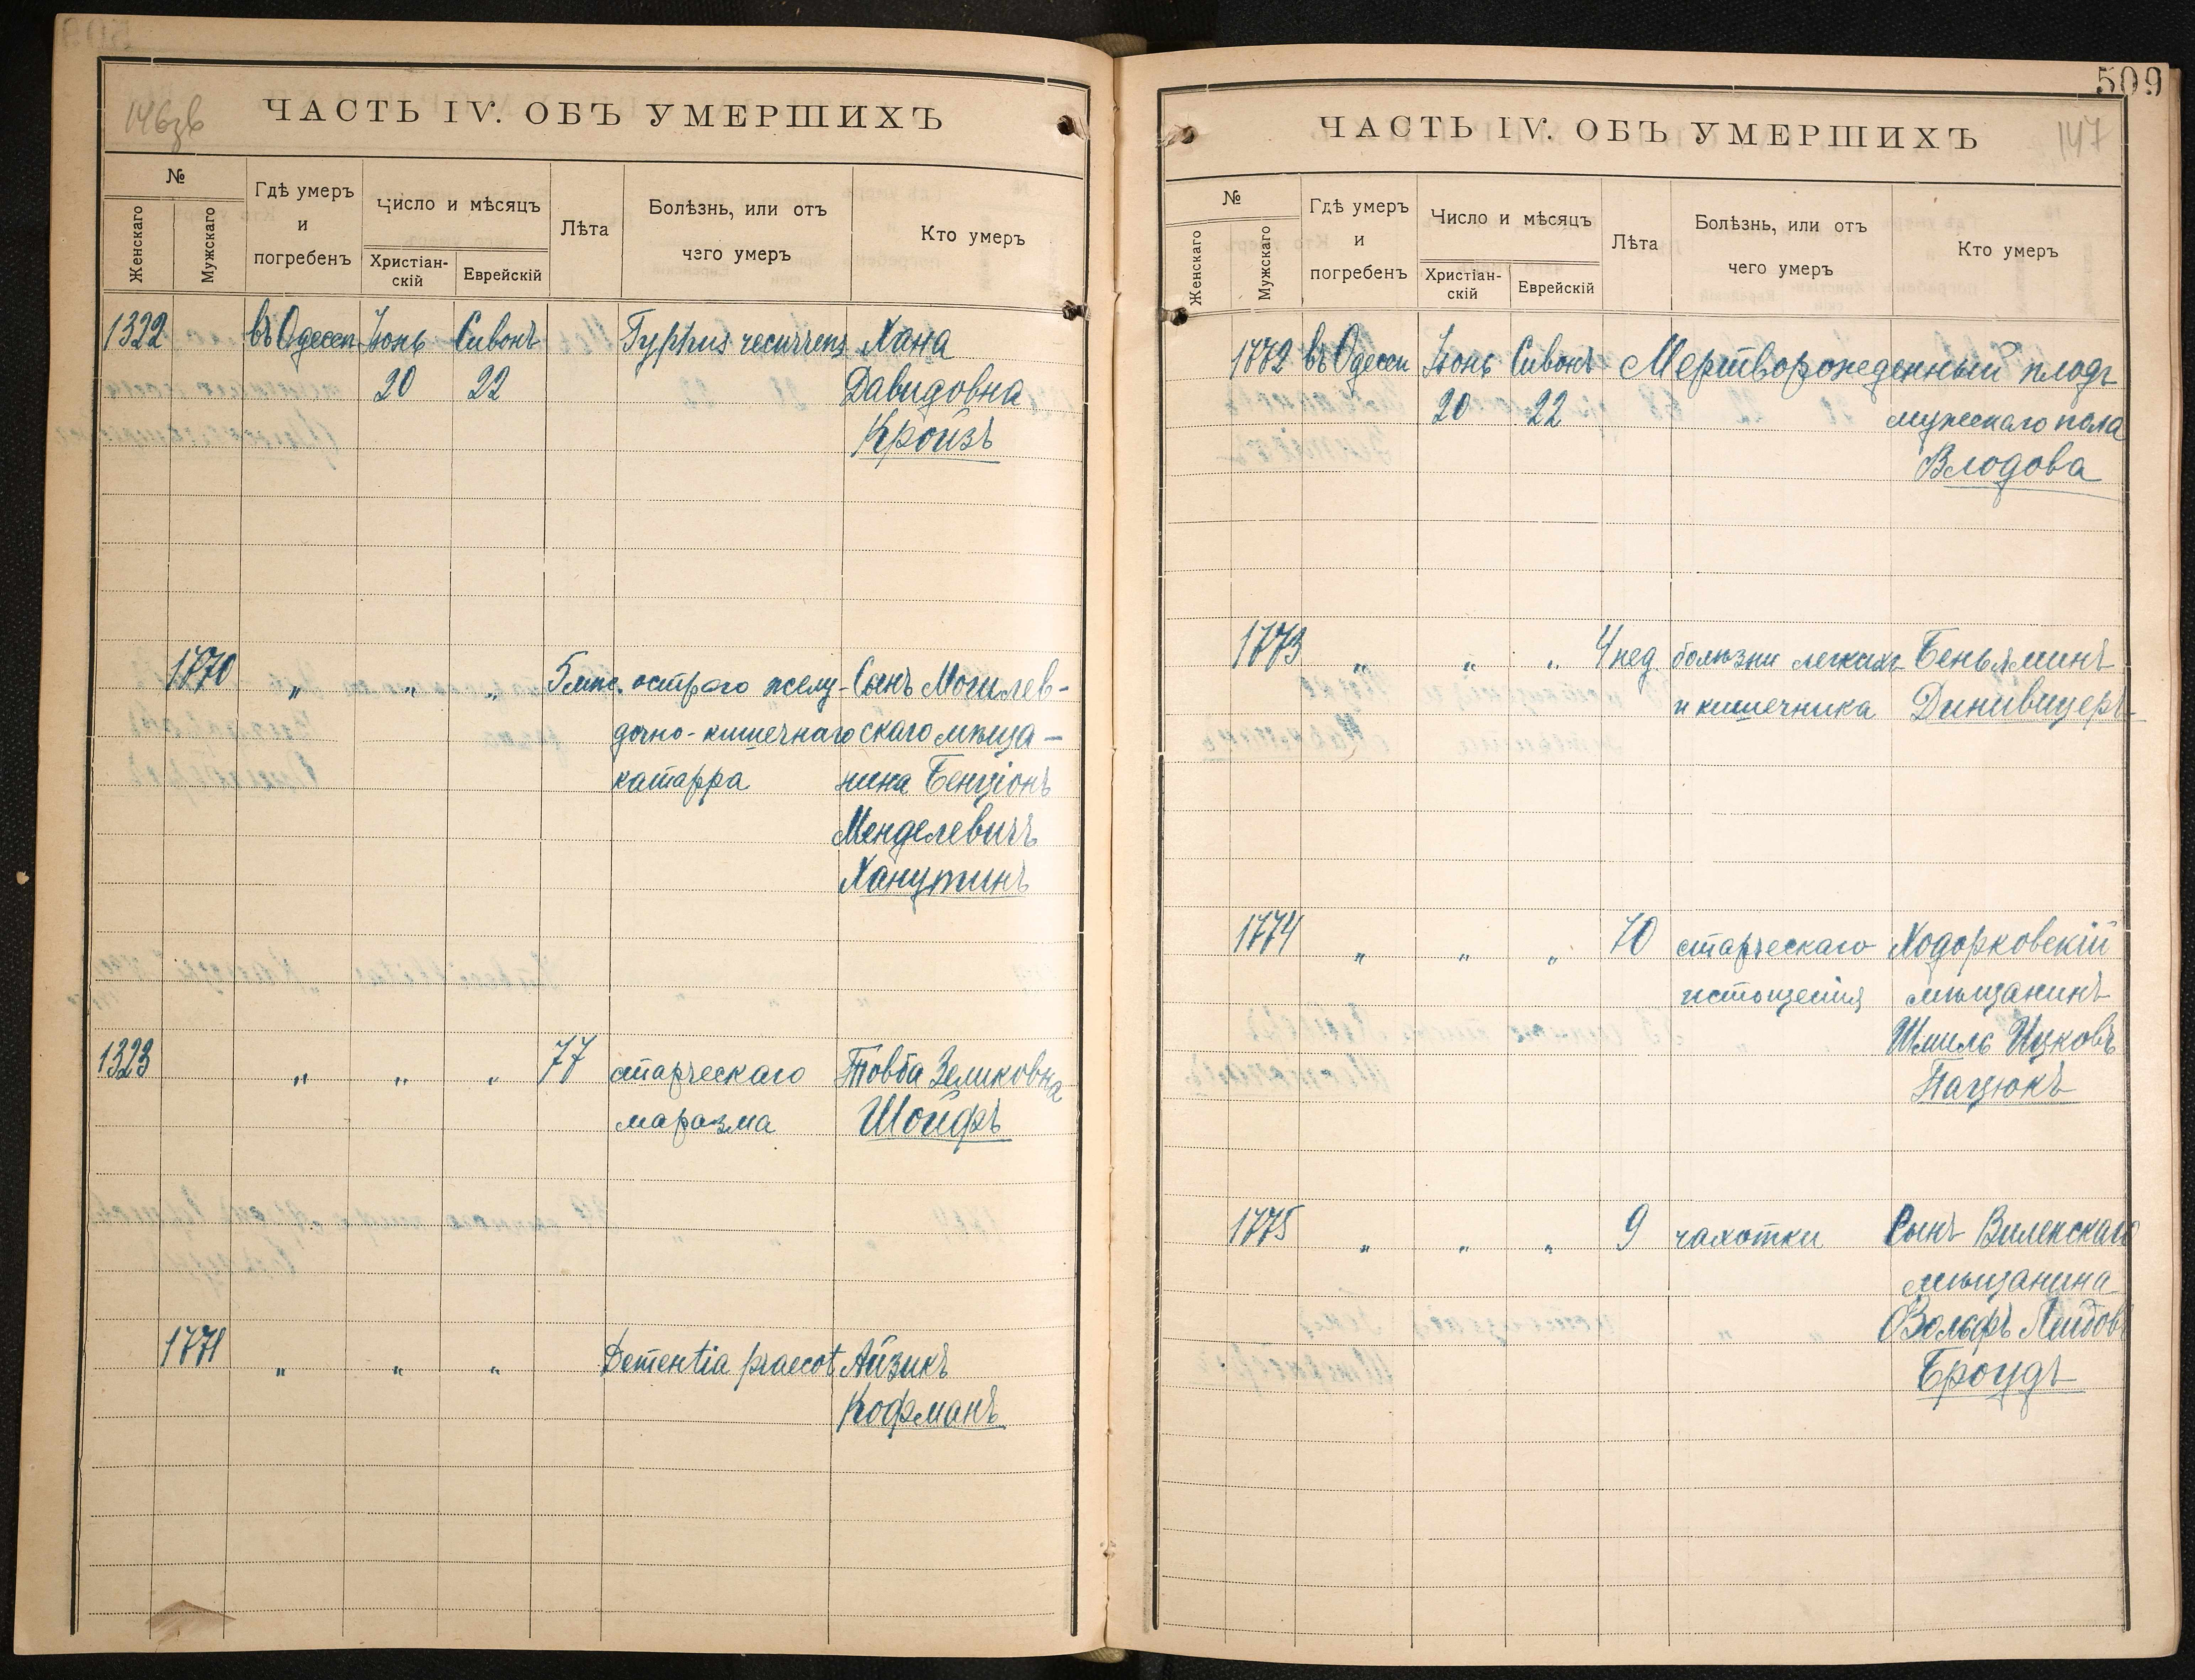 146зв
ЧАСТЬ IV. ОБЪ УМЕРШИХЪ
№
Женскаго
Мужскаго
Гдѣ умеръ
и
погребенъ
Число и мѣсяцъ
Христіан-
скій
Еврейскій
Лѣта
Болѣзнь, или отъ
чего умеръ
Кто умеръ
1322 въ Одессѣ Іюнь Сивонъ Typhus recurrens Хана
20 22 Давидовна
Кройзъ
1770 " " " 5 мѣс. острого желу- Сынъ Могилев-
дочно-кишечнаго скаго мѣща-
катарра нина Бенціонъ
Менделевичъ
Ханутинъ
1323 " " " 77 старческаго Товба Зеликовна
маразма Шойфъ
1771 " " " Dementia praecot Айзикъ
Кофманъ
509
ЧАСТЬ IV. ОБЪ УМЕРШИХЪ
147
№
Женскаго
Мужскаго
Гдѣ умеръ
и
погребенъ
Число и мѣсяцъ
Христіан-
скій
Еврейскій
Лѣта
Болѣзнь, или отъ
чего умеръ
Кто умеръ
1772 въ Одессѣ Іюнь Сивонъ Мертворожденный плодъ
20 22 мужескаго пола
Влодова
1773 " " " 4 нед. болѣзни легкихъ Беньяминъ
и кишечника Динивицеръ
1774 " " " 70 старческаго Ходорковскій
истощенія мѣщанинъ
Шмиль Ицковъ
Пацюкъ
1775 " " " 9 чахотки Сынъ Виленскаго
мѣщанина
Вольфъ Лейбовъ
Броудъ